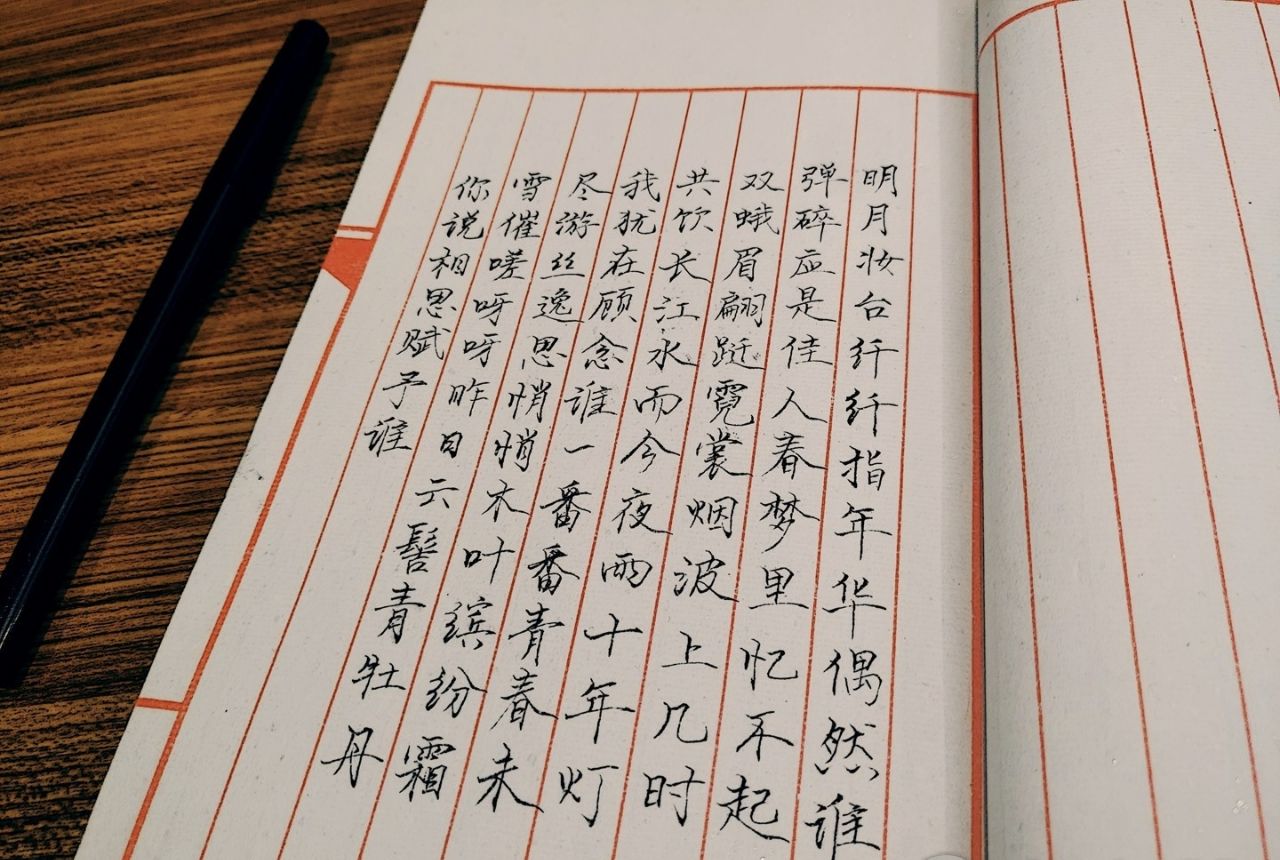 明月妆台纤纤指年华偶然谁
弹碎应是佳人春梦里忆不起
双蛾眉翩跹霓裳烟波上几时
共饮长江水而今夜雨十年灯
我犹在顾念谁一番番青春未
尽游丝逸思悄悄木叶缤纷霜
雪催嗟呀呀昨日云髻青牡丹
你说相思赋予谁